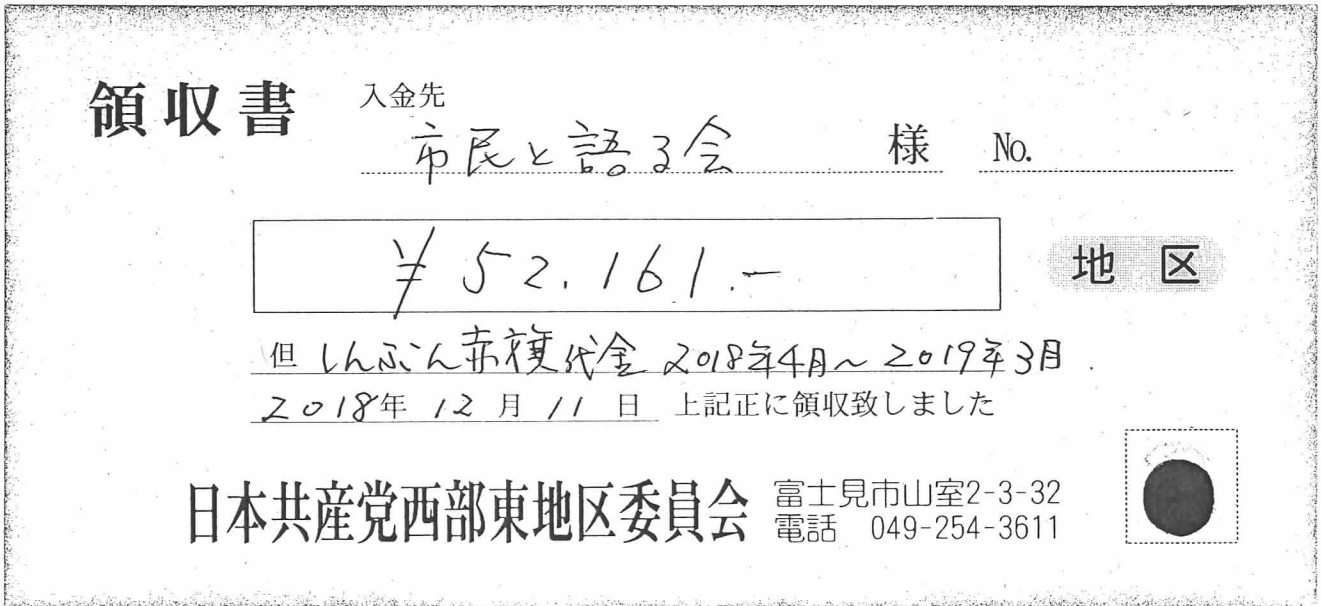 領収書
入金先
市民と語る会 様 No.
¥52.161.-
地区
但 しんぶん赤旗代金 2018年4月～2019年3月
2018年 12月 11日 上記正に領収致しました
日本共産党西部東地区委員会
富士見市山室2-3-32
電話 049-254-3611